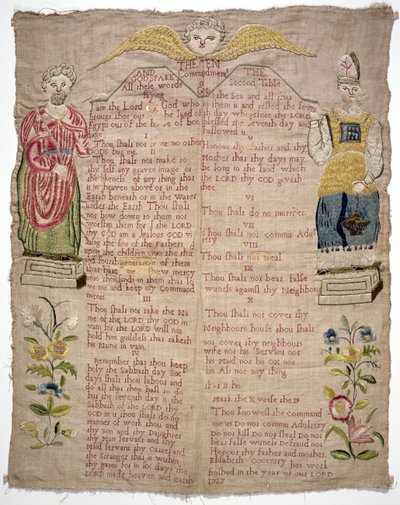 THE TEN
Commandments
AND
GOD SPAKE
All these words
saying
I am the Lord thy God who
brought thee out of the land of
Egypt out of the house of bon
I
Thou shalt have no other
GODs but me II
Thou shalt not make to
thy self any graven image or
the likeness of any thing that
is in heaven above or in the
Earth beneath or in the Water
under the Earth Thou shalt
not bow down to them nor
worship them for I the LORD
thy GOD am a Jealous GOD vi
siting the sins of the Fathers
upon the children unto the third
and fourth generation of them
that hate me shew mercy
unto thousands in them that lo
ve me and keep my Command
ments
III
Thou shalt not take the Na
me of the LORD thy GOD in
vain for the LORD will not
hold him guiltless that taketh
his name in vain
IV
Remember that thou keep
holy the Sabbath day Six
days shalt thou labour and
do all that thou hast to do
but the seventh day is the
Sabbath of the LORD thy
GOD in it thou shalt do no
manner of work thou and
thy son and thy Daughter
thy Man servant and thy
Maid servant thy cattel and
the stranger that is within
thy gates for in six days the
LORD made heaven and earth
THE
Second Table
of
GOD
the Sea and all that
in them is and rested the seven
th day wherefore the LORD
blessed the seventh day and
hallowed it
V
Honour thy father and thy
Mother that thy days may
be long in the land which
the LORD thy GOD giveth
thee
VI
Thou shalt do no murther
VII
Thou shalt not commit Adul
tery
VIII
Thou shalt not steal
IX
Thou shalt not bear false
witness against thy Neighbour
X
Thou shalt not covet thy
Neighbours house thou shalt
not covet thy neighbours
wife nor his Servant nor
his Maid nor his ox nor
his Ass nor any thing
that is his
Mark the X verse the 19
Thou knowest the command
ments Do not commit Adultery
Do not kill Do not steal Do not
bear false witness Defraud not
Honour thy Father and mother
Elizabeth Coventry her work
finished in the year of our LORD
1727